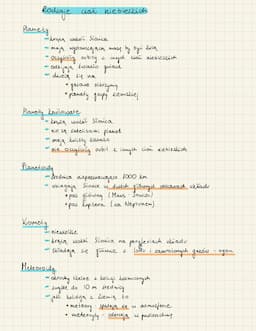 Rodzaje ciał niebieskich
Planety
- krążą wokół Słońca
- mają wystarczającą masę by być kulą
- oczyściły orbitę z innych ciał niebieskich
- odbijają światło gwiazd
- dzielą się na
• gazowe olbrzymy
• planety grupy ziemskiej
Planety karłowate
- krążą wokół Słońca
- nie są satelitami planet
- mają kulisty kształt
- nie oczyściły orbit z innych ciał niebieskich
Planetoidy
- średnica 1000 km
- okrążają Słońce w dwóch głównych obszarach układu
• pas główny (Mars Jowisz)
• pas Kuipera (za Neptunem)
Komety
- niewielkie
- krążą wokół Słońca na peryferiach układu
- składają się głównie z lodu i
Meteoroidy
- okruchy skalne z kolizji kosmicznych
- zwykle do 10 m średnicy
- jeśli kolidują z Ziemią to
• meteory - spalają się w atmosferze
• meteoryty - uderzają w powierzchnię